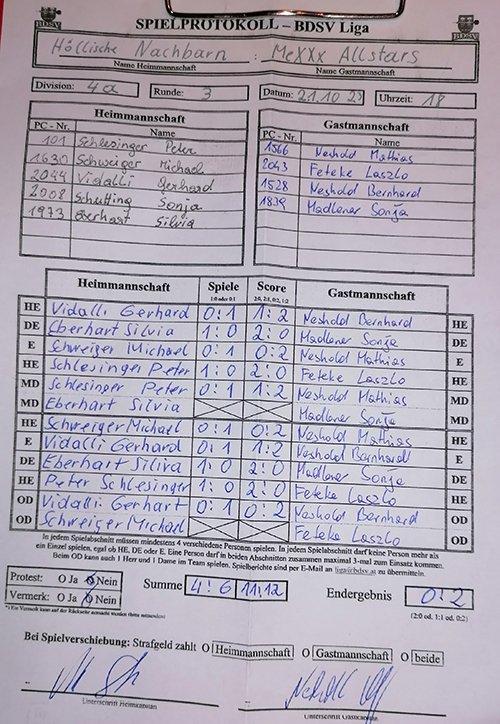 BDSV
SPIELPROTOKOLL – BDSV Liga
BDSV
Höllische Nachbarn : MeXXx Allstars
Name Heimmannschaft Name Gastmannschaft
Division: 4a Runde: 3 Datum: 21.10 23 Uhrzeit: 18
Heimmannschaft
PC - Nr. Name
101 Schlesinger Peter
1630 Schweiger Michael
2044 Vidalli Gerhard
2008 Schutting Sonja
1973 Eberhart Silvia
Gastmannschaft
PC - Nr. Name
1566 Neshold Mathias
2043 Feteke Laszlo
1528 Neshold Bernhard
1839 Madlener Sonja
Heimmannschaft Spiele Score Gastmannschaft
1:0 oder 0:1 2:0, 2:1, 0:2, 1:2
HE Vidalli Gerhard 0:1 1:2 Neshold Bernhard HE
DE Eberhart Silvia 1:0 2:0 Madlener Sonja DE
E Schweiger Michael 0:1 0:2 Neshold Mathias E
HE Schlesinger Peter 1:0 2:0 Feteke Laszlo HE
MD Schlesinger Peter 0:1 1:2 Neshold Mathias MD
MD Eberhart Silvia Madlener Sonja MD
HE Schweiger Michael 0:1 0:2 Neshold Mathias HE
E Vidalli Gerhard 0:1 1:2 Neshold Bernhard E
DE Eberhart Siliva 1:0 2:0 Madlener Sonja DE
HE Peter Schlesinger 1:0 2:0 Feteke Laszlo HE
OD Vidalli Gerhart 0:1 0:2 Neshold Bernhard OD
OD Schreiger Michael Feteke Laszlo OD
In jedem Spielabschnitt müssen mindestens 4 verschiedene Personen spielen. In jedem Spielabschnitt darf keine Person mehr als
ein Einzel spielen, egal ob HE, DE oder E. Eine Person darf in beiden Abschnitten zusammen maximal 3-mal zum Einsatz kommen.
Beim OD kann auch 1 Herr und 1 Dame im Team spielen. Spielberichte sind per E-Mail an liga@bdsv.at zu übermitteln.
Protest: O Ja O Nein Summe 4:6 11:12 Endergebnis 0:2
Vermerk: O Ja O Nein (2:0 od. 1:1 od. 0:2)
*) Ein Vermerk kann auf der Rückseite
Bei Spielverschiebung: Strafgeld zahlt O Heimmannschaft O Gastmannschaft O beide
Unterschrift Heimkapitän
Unterschrift Gastkapitän